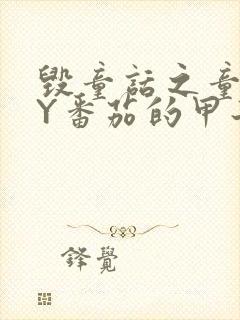 毁童话之童
Y番茄的甲
鋒覺